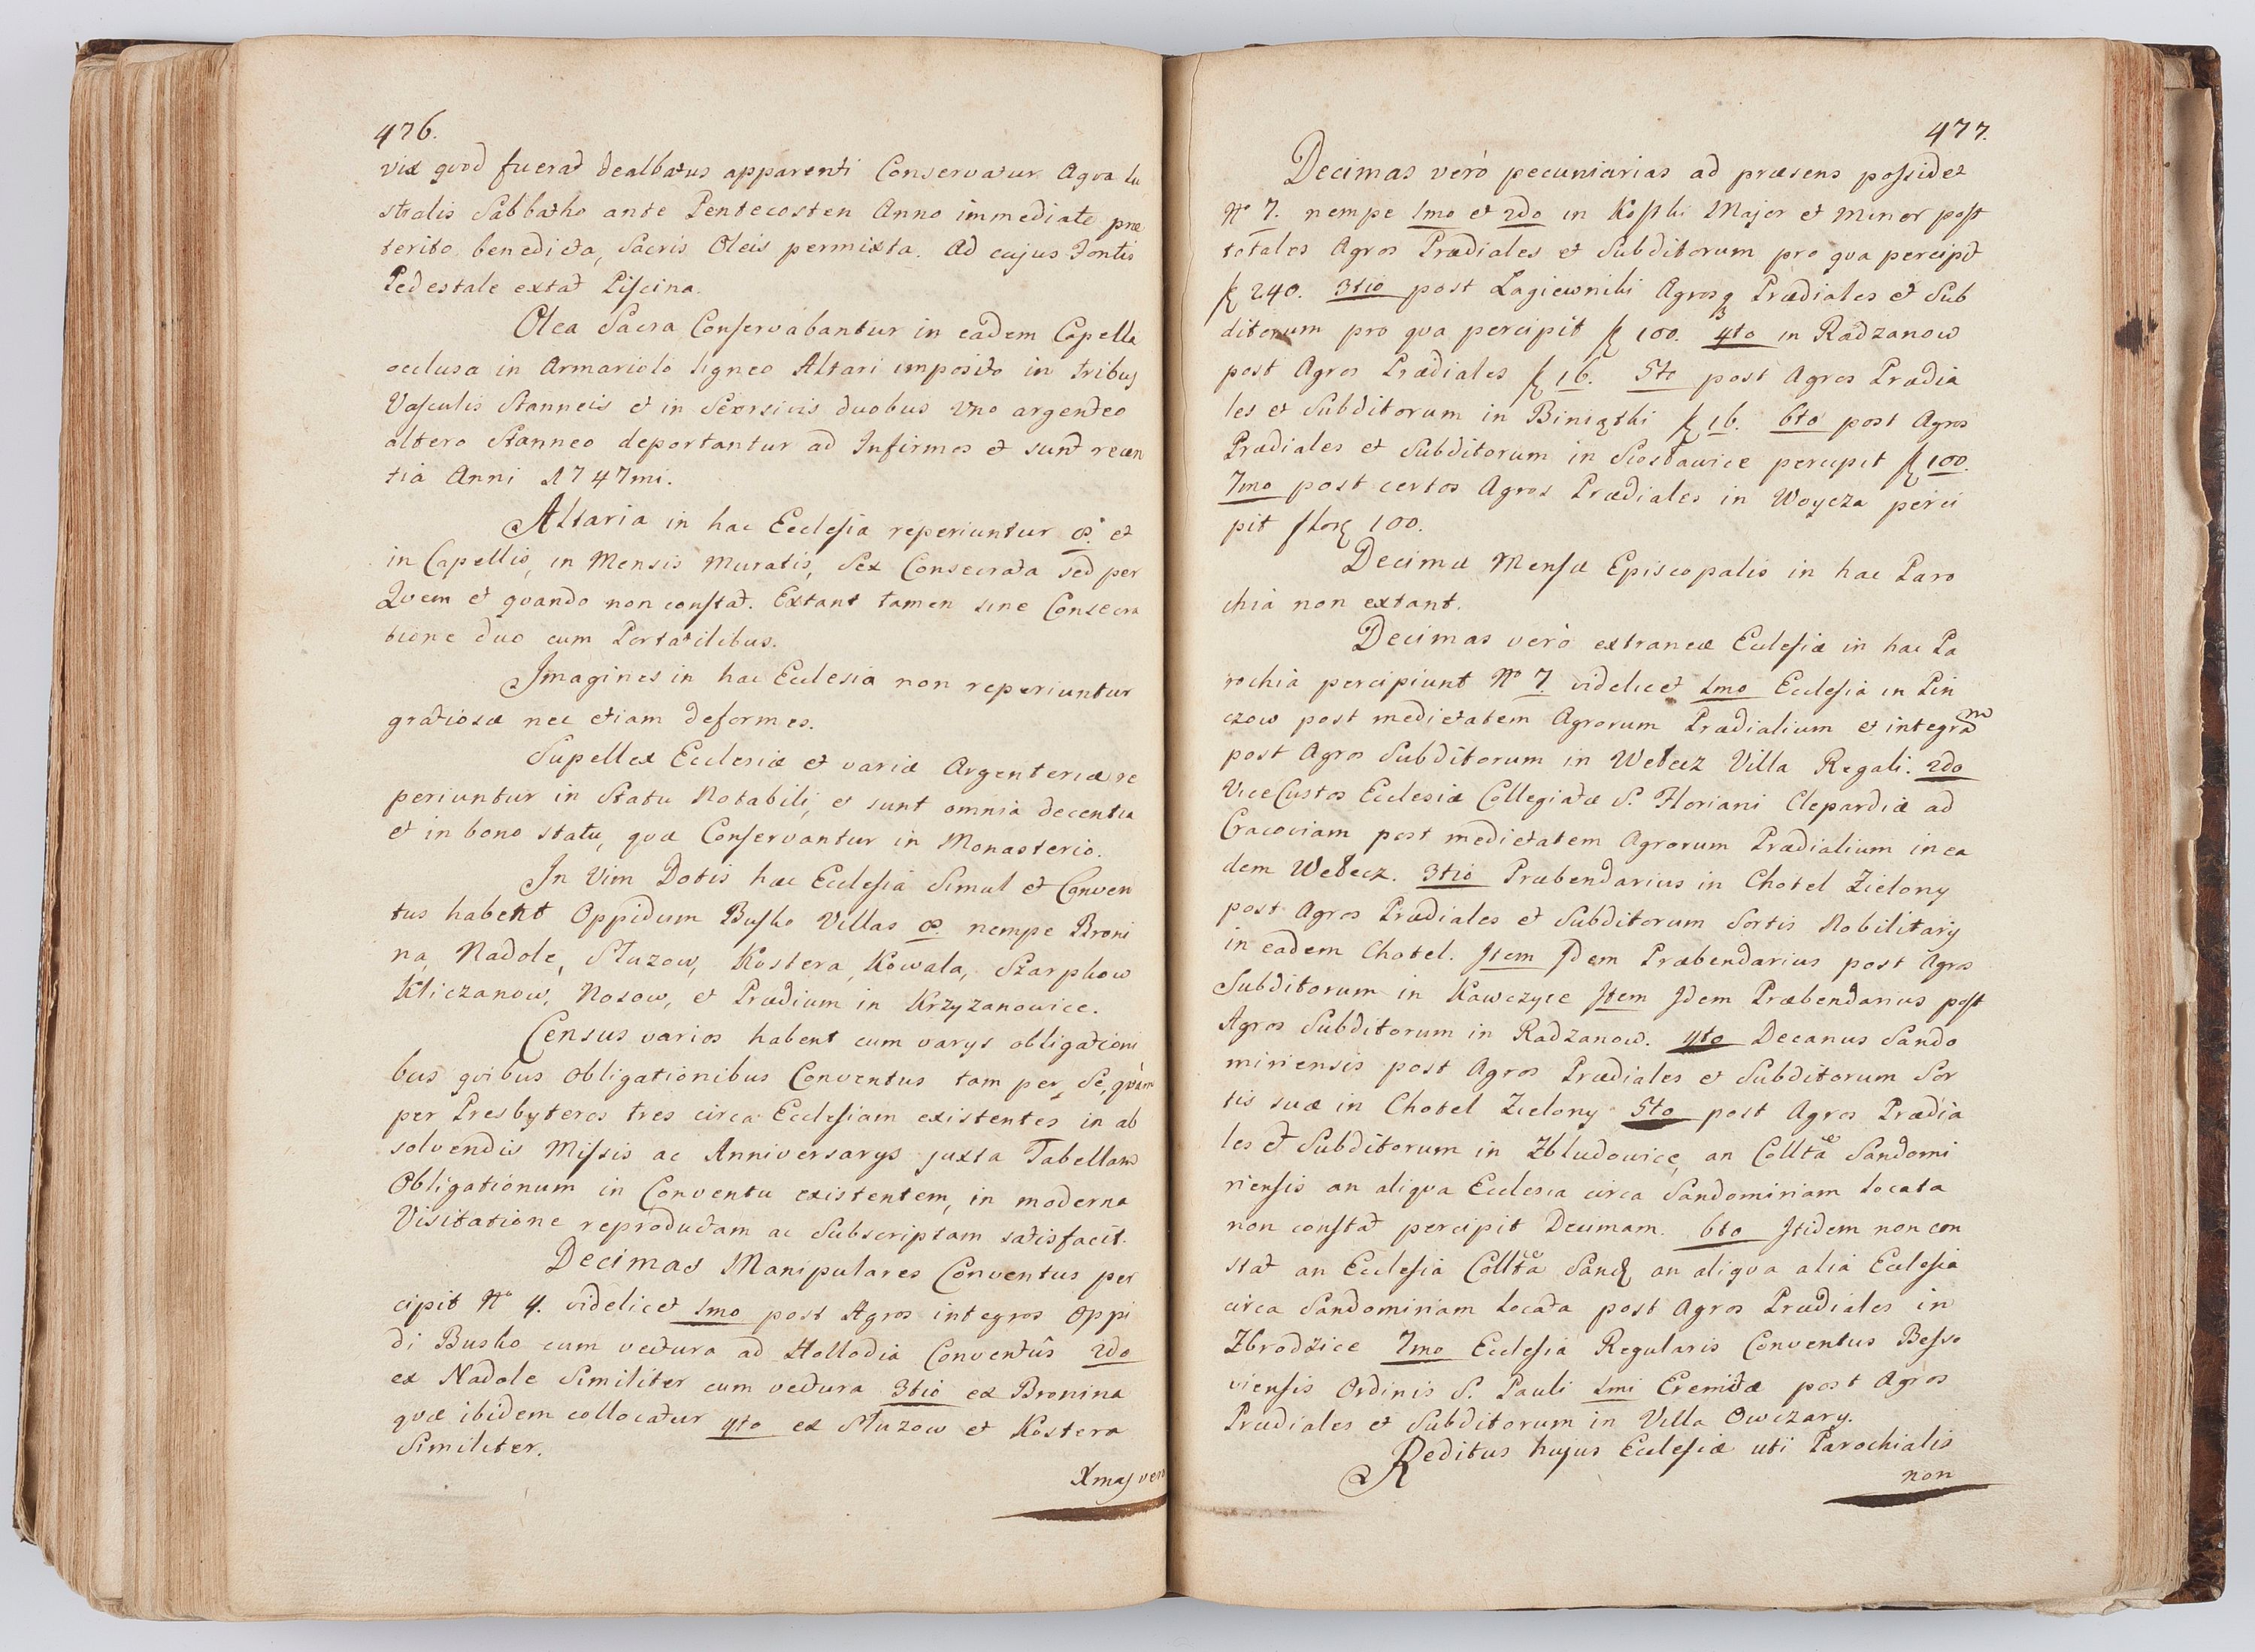 476.
vix quod fuerat dealbatus apparenti Conservatur Aqva Lu
stralis Sabbatho ante Pentecosten Anno immediate præ
terito benedicta, Sacris Oleis permixta. Ad cujus Fontis
Pedestale extat Piscina.
Olea Sacra Conservabantur in eadem Capella
oclusa in Armariolo ligneo Altari imposito in tribus
Vasculis Stanneis et in duobus Uno argenteo
altero Stanneo deportantur ad Infirmos et sunt recen
tia Anni 1747mi.
Altaria in hac Ecclesia reperiuntur 8. et
in Capellis, in Mensis Muratis, Sex Consecrata sed per
Qvem et qvando non constat. Extant tamen sine Consecra
tione duo cum Portatilibus.
Imagines in hac Ecclesia non reperiuntur
gratiosæ nec etiam deformes.
Supellex Ecclesiæ et variæ Argenteriæ re
periuntur in Statu Notabili, et sunt omnia decentia
et in bono statu, qvæ Conservantur in Monasterio.
In Vim Dotis hæc Ecclesia Simul et Conven
tus habent Oppidum Busko Villas 8. nempe Broni
na, Nadole, Słuzow, Kostera, Kowala, Szarpkow
Kliczanow, Nosow, et Prædium in Krzyzanowice.
Census varios habent cum varys obligationi
bus qvibus Obligationibus Conventus tam per Se, qvàm
per Presbyteros tres circa Ecclesiam existentes in ab
solvendis Missis ac Anniversarys juxta Tabellam
Obligationum in Conventu existentem, in moderna
Visitatione reproductam ac Subscriptam satisfacit.
Decimas Manipulares Conventus per
cipit No 4. videlicet 1mo post Agros integros Oppi
di Busko cum vectura ad Hollodia Conventûs 2do
ex Nadole Similiter cum vectura 3tio ex Bronina
qvæ ibidem collocatur 4to ex Słuzow et Kostera
Similiter.
Xmas vero
477.
Decimas verò pecuniarias ad præsens possidet
No 7. nempe 1mo et 2do in Kostki Major et Minor post
totales Agros Prædiales et Subditorum pro qva percipit
f 240. 3tio post Lagiewniki Agrosq Prædiales et Sub
ditorum pro qva percipit f 100. 4to in Radzanow
post Agros Prædiales f 16. 5to post Agros Prædia
les et Subditorum in Biniątki f 16. 6to post Agros
Prædiales et Subditorum in Siesławice percipit f 100.
7mo post certos Agros Prædiales in Woycza perci
pit flor 100.
Decimæ Mensæ Episcopalis in hac Paro
chia non extant.
Decimas verò extraneæ Ecclesiæ in hac Pa
rochia percipiunt No 7. videlicet 1mo Ecclesia in Pin
czow post medietatem Agrorum Prædialium et integram
post Agros Subditorum in Wełecz Villa Regali. 2do
ViceCustos Ecclesiæ Collegiatæ S. Floriani Clepardiæ ad
Cracoviam post medietatem Agrorum Prædialium in ea
dem Wełecz. 3tio Præbendarius in Chotel Zielony
post Agros Prædiales et Subditorum Sortis Nobilitarÿ
in eadem Chotel. Item Idem Præbendarius post Agros
Subditorum in Kawczyce Item Idem Præbendarius post
Agros Subditorum in Radzanow. 4to Decanus Sando
miriensis post Agros Prædiales et Subditorum Sor
tis suæ in Chotel Zielony 5to post Agros Prædia
les et Subditorum in Zbludowice, an Colltae Sandomi
riensis an aliqva Ecclesia circa Sandomiriam Locata
non constat percipit Decimam. 6to Itidem non con
stat an Ecclesia Colltae Sand an aliqva alia Ecclesia
circa Sandomiriam Locata post Agros Prædiales in
Zbrodzice 7mo Ecclesia Regularis Conventus Besso
viensis Ordinis S. Pauli 1mi Eremitæ post Agros
Prædiales et Subditorum in Villa Owczary.
Reditus hujus Ecclesiæ uti Parochialis
non